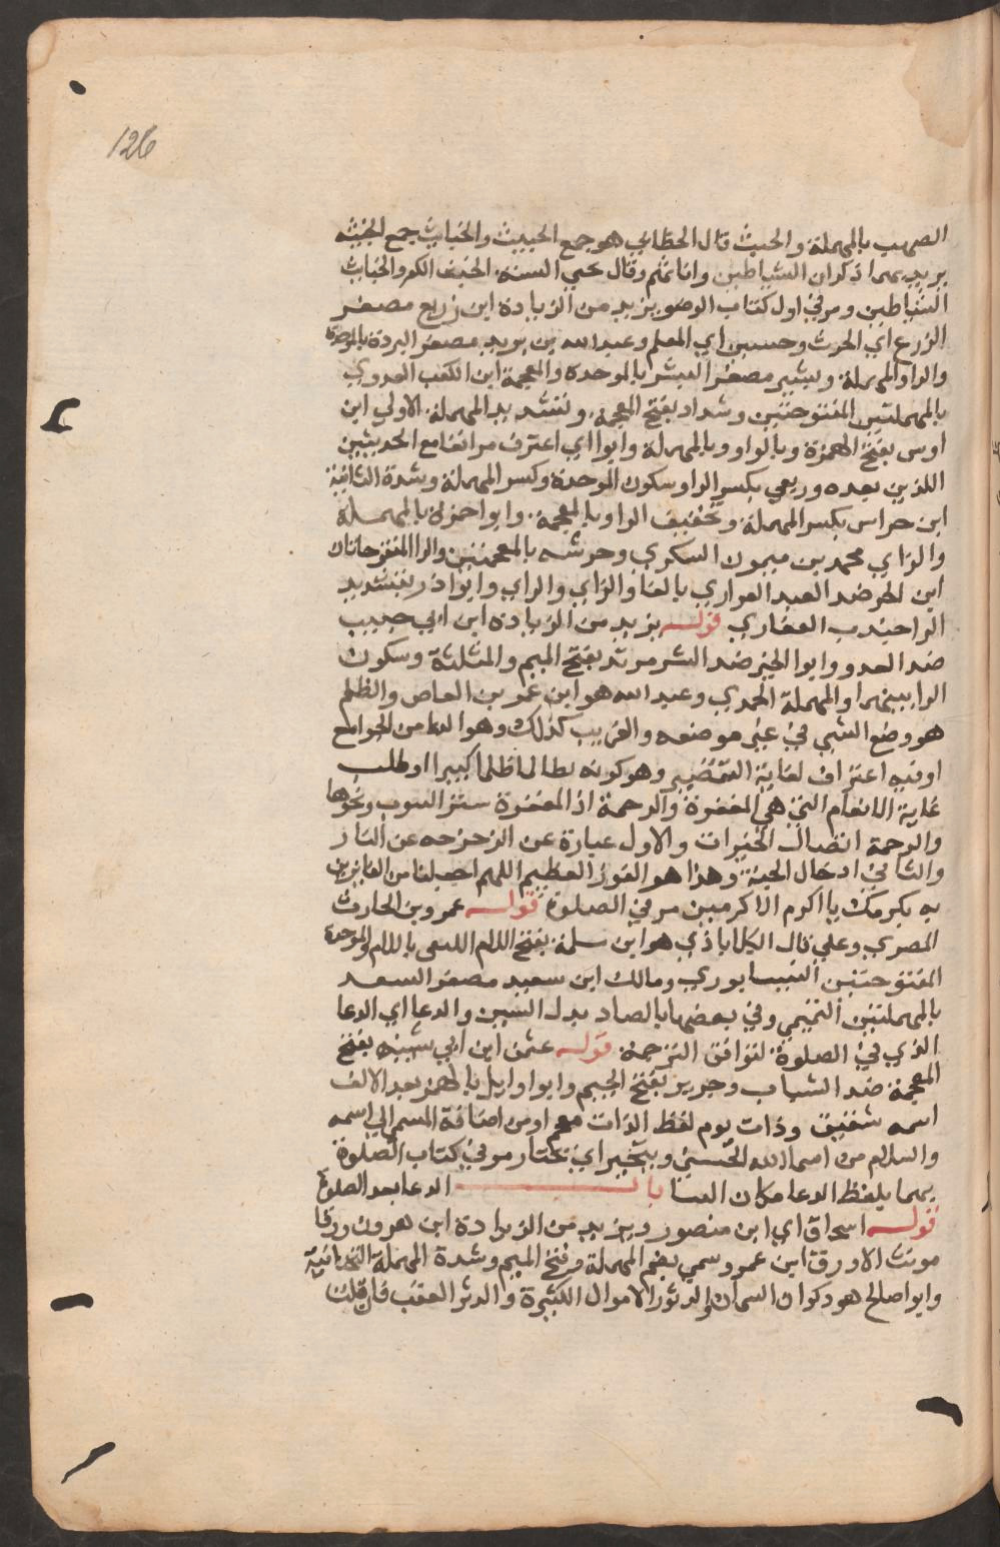 126
الصهيب بالمهملة والخبث قال الخطابي هو جمع الخبيث والخبايث جمع الخبيثه
يريد بهما ذكران الشياطين واناثهم وقال محيي السنة الخبث الكفر والخبايث
الشياطين ومر في اول كتاب الوضو يزيد من الزيادة ابن زريع مصغر
الزرع اي الحرث وحسين اي المعلم وعبد الله بن بريد مصغر البردة بالموحدة
والرا والمهملة وبشير مصغر البشر بالموحدة والمعجمة ابن الكعب العدوي
بالمهملتين المفتوحتين وشداد بفتح المعجمة وتشديد المهملة الاولي ابن
اوس بفتح الهمزة وبالواو وبالمهملة وابوا اي اعترف مر انفا مع الحديثين
اللذين بعده وربعي بكسر الرا وسكون الموحدة وكسر المهملة وشدة التانية
ابن حراس بكسر المهملة وتخفيف الرا وبالمعجمة وابو احمزة بالمهملة
والزاي محمد بن ميمون السكري وخرشه بالمعجمتين والرا المفتوحات
ابن الحر ضد العبد الفزاري بالفا والزاي والراي وابوا ذر بتشديد
الرا جندب الغفاري قوله يزيد من الزيادة ابن ابي حبيب
ضد العدو وابوا الخير ضد الشر مرثد بفتح الميم والمثلثة وسكون
الرا بينهما والمهملة الحمدي وعبد الله هو ابن عمر بن العاص والظلم
هو وضع الشي في غير موضعه والقريب كذلك وهو الدعا من الجوامع
اوفيه اعتراف لغاية التقضير وهو كونه ظالما ظلما كبيرا وطلب
غاية الانعام التي هي المغفرة والرحمة اذ المغفرة ستر الذنوب ونحوها
والرحمة ايضال الخيرات والاول عبارة عن الزحزحه عن النار
والثاني ادخال الجنة وهذا هو الفوز العظيم اللهم اجعلنا من الفايزين
به بكرمك يا اكرم الاكرمين مر في الصلوة قوله عمرو بن الحارث
المصري وعلي قال الكلاباذي هو ابن سلمة بفتح اللام اللبقي باللام والموحدة
المفتوحتين النيسابوري ومالك ابن سعيد مصغر السعد
بالمهملتين التميمي وفي بعضها بالصاد بدل السين والدعا اي الدعا
الذي في الصلوة لتوافق الترجمة قوله عثمن ابن ابي شيبه بفتح
المعجمة ضد الشباب وجرير بفتح الجيم وابوا وايل بالهمز بعد الالف
اسمه شقيق وذات يوم لفظ الذات مقحم او من اضافة المسمي الي اسمه
والسلام من اسما الله الحسني ويتخير اي يختار مر في كتاب الصلوة
بهما بلفظ الدعا مكان الثنا باب الدعا بعد الصلوة
قوله اسحاق اي ابن منصور ويزيد من الزيادة ابن هرون ورقا
مونث الاورق ابن عمر وسمي بضم المهملة وفتح الميم وشدة المهملة التحتانية
وابوا صالح هو ذكوان السمان والدثور الاموال الكثيرة والدثر العقب فان قلت